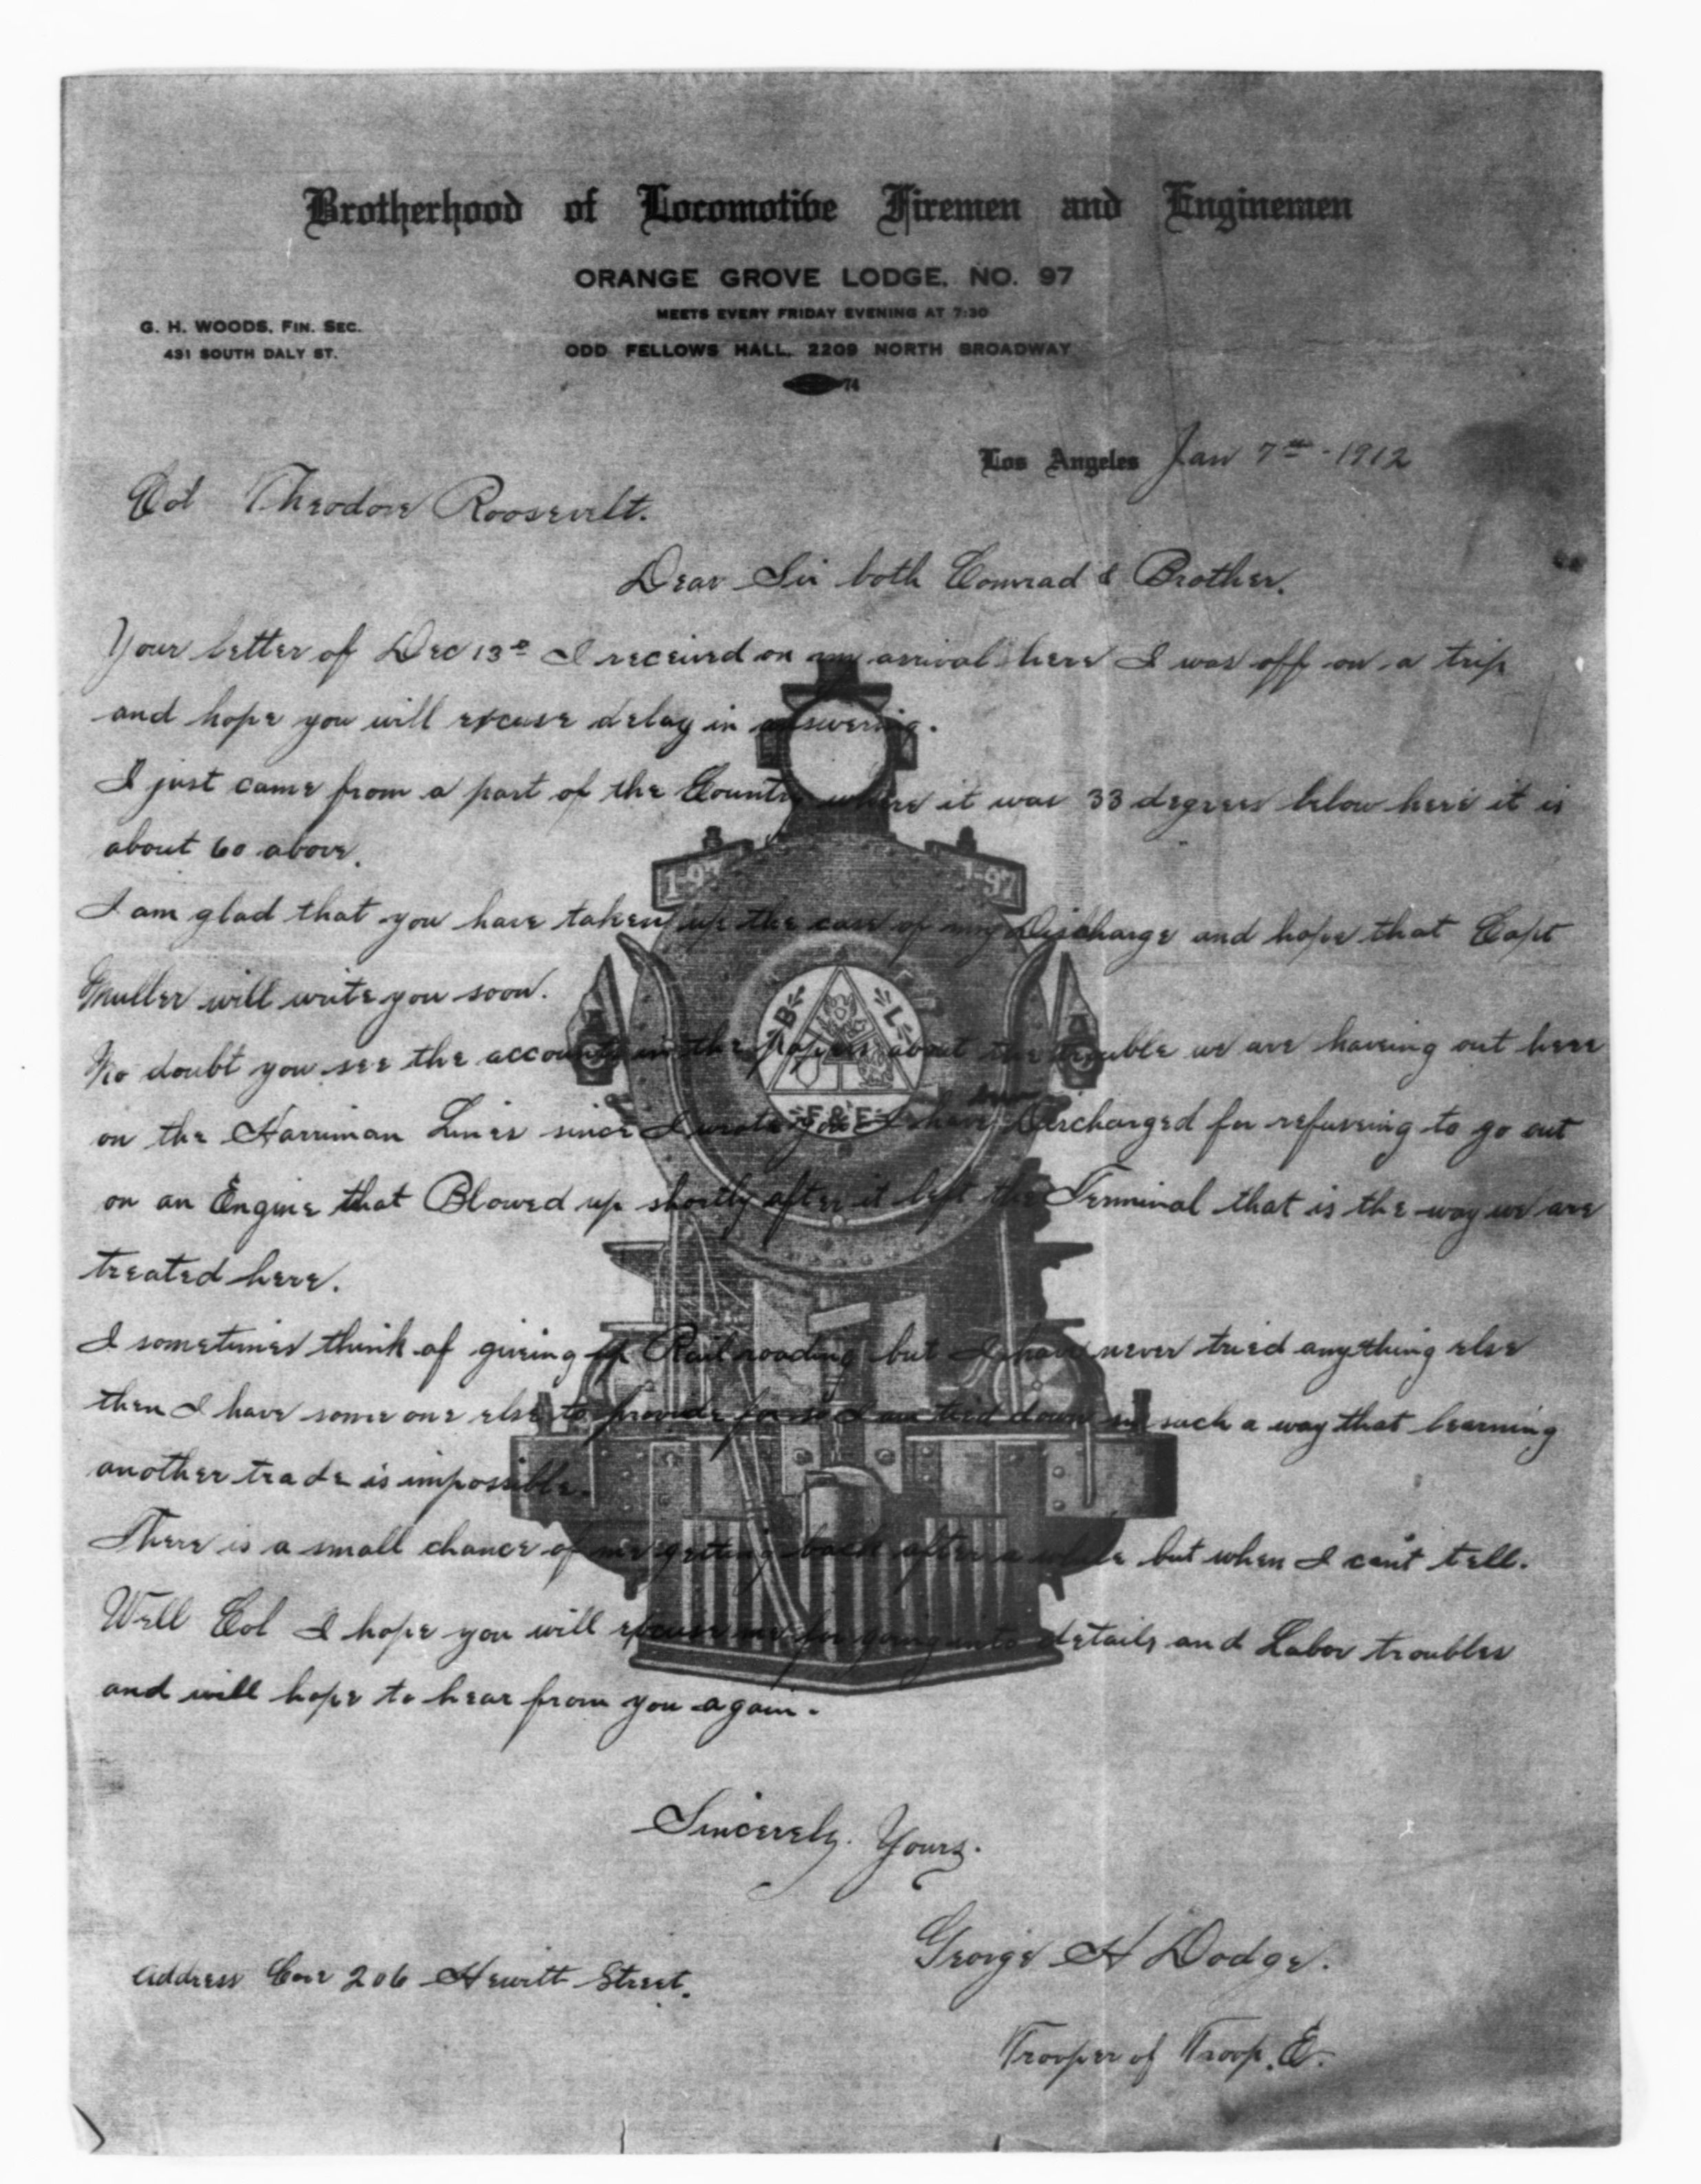 Brotherhood of Locomotive Firemen and Enginemen
ORANGE GROVE LODGE, NO. 97
MEETS EVERY FRIDAY EVENING AT 7:30
G. H. WOODS, FIN. SEC.
431 SOUTH DALY ST.
ODD FELLOWS HALL, 2209 NORTH BROADWAY
74
Los Angeles Jan 7th - 1912
Col Theodore Roosevelt.
Dear Sir both Comrad & Brother.
Your letter of Dec 13th I received on my arrival here I was off on a trip
and hope you will excuse delay in answering.
I just came from a part of the Country where it was 33 degrees below here it is
about 60 above.
1-97 1-97
I am glad that you have taken up the case of my Discharge and hope that Capt
Muller will write you soon.
B L
No doubt you see the accounts in the papers about the trouble we are haveing out here
F & E
on the Harriman Lines since I wrote you I have been Discharged for refuseing to go out
on an Engine that Blowed up shortly after it left the Terminal that is the way we are
treated here.
I sometimes think of giveing up Rail roading but I have never tried anything else
then I have some one else to provide for so I am tied down in such a way that learning
another trade is impossible.
There is a small chance of me getting back after a while but when I can't tell.
Well Col I hope you will excuse me for going into details and Labor troubles
and will hope to hear from you again.
Sincerely. Yours.
George H Dodge.
Address 206 Hewitt Street.
Trooper of Troop. E.